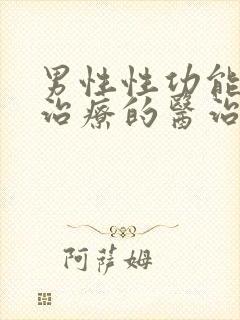 男性性功能
治療的醫治
阿薩姆